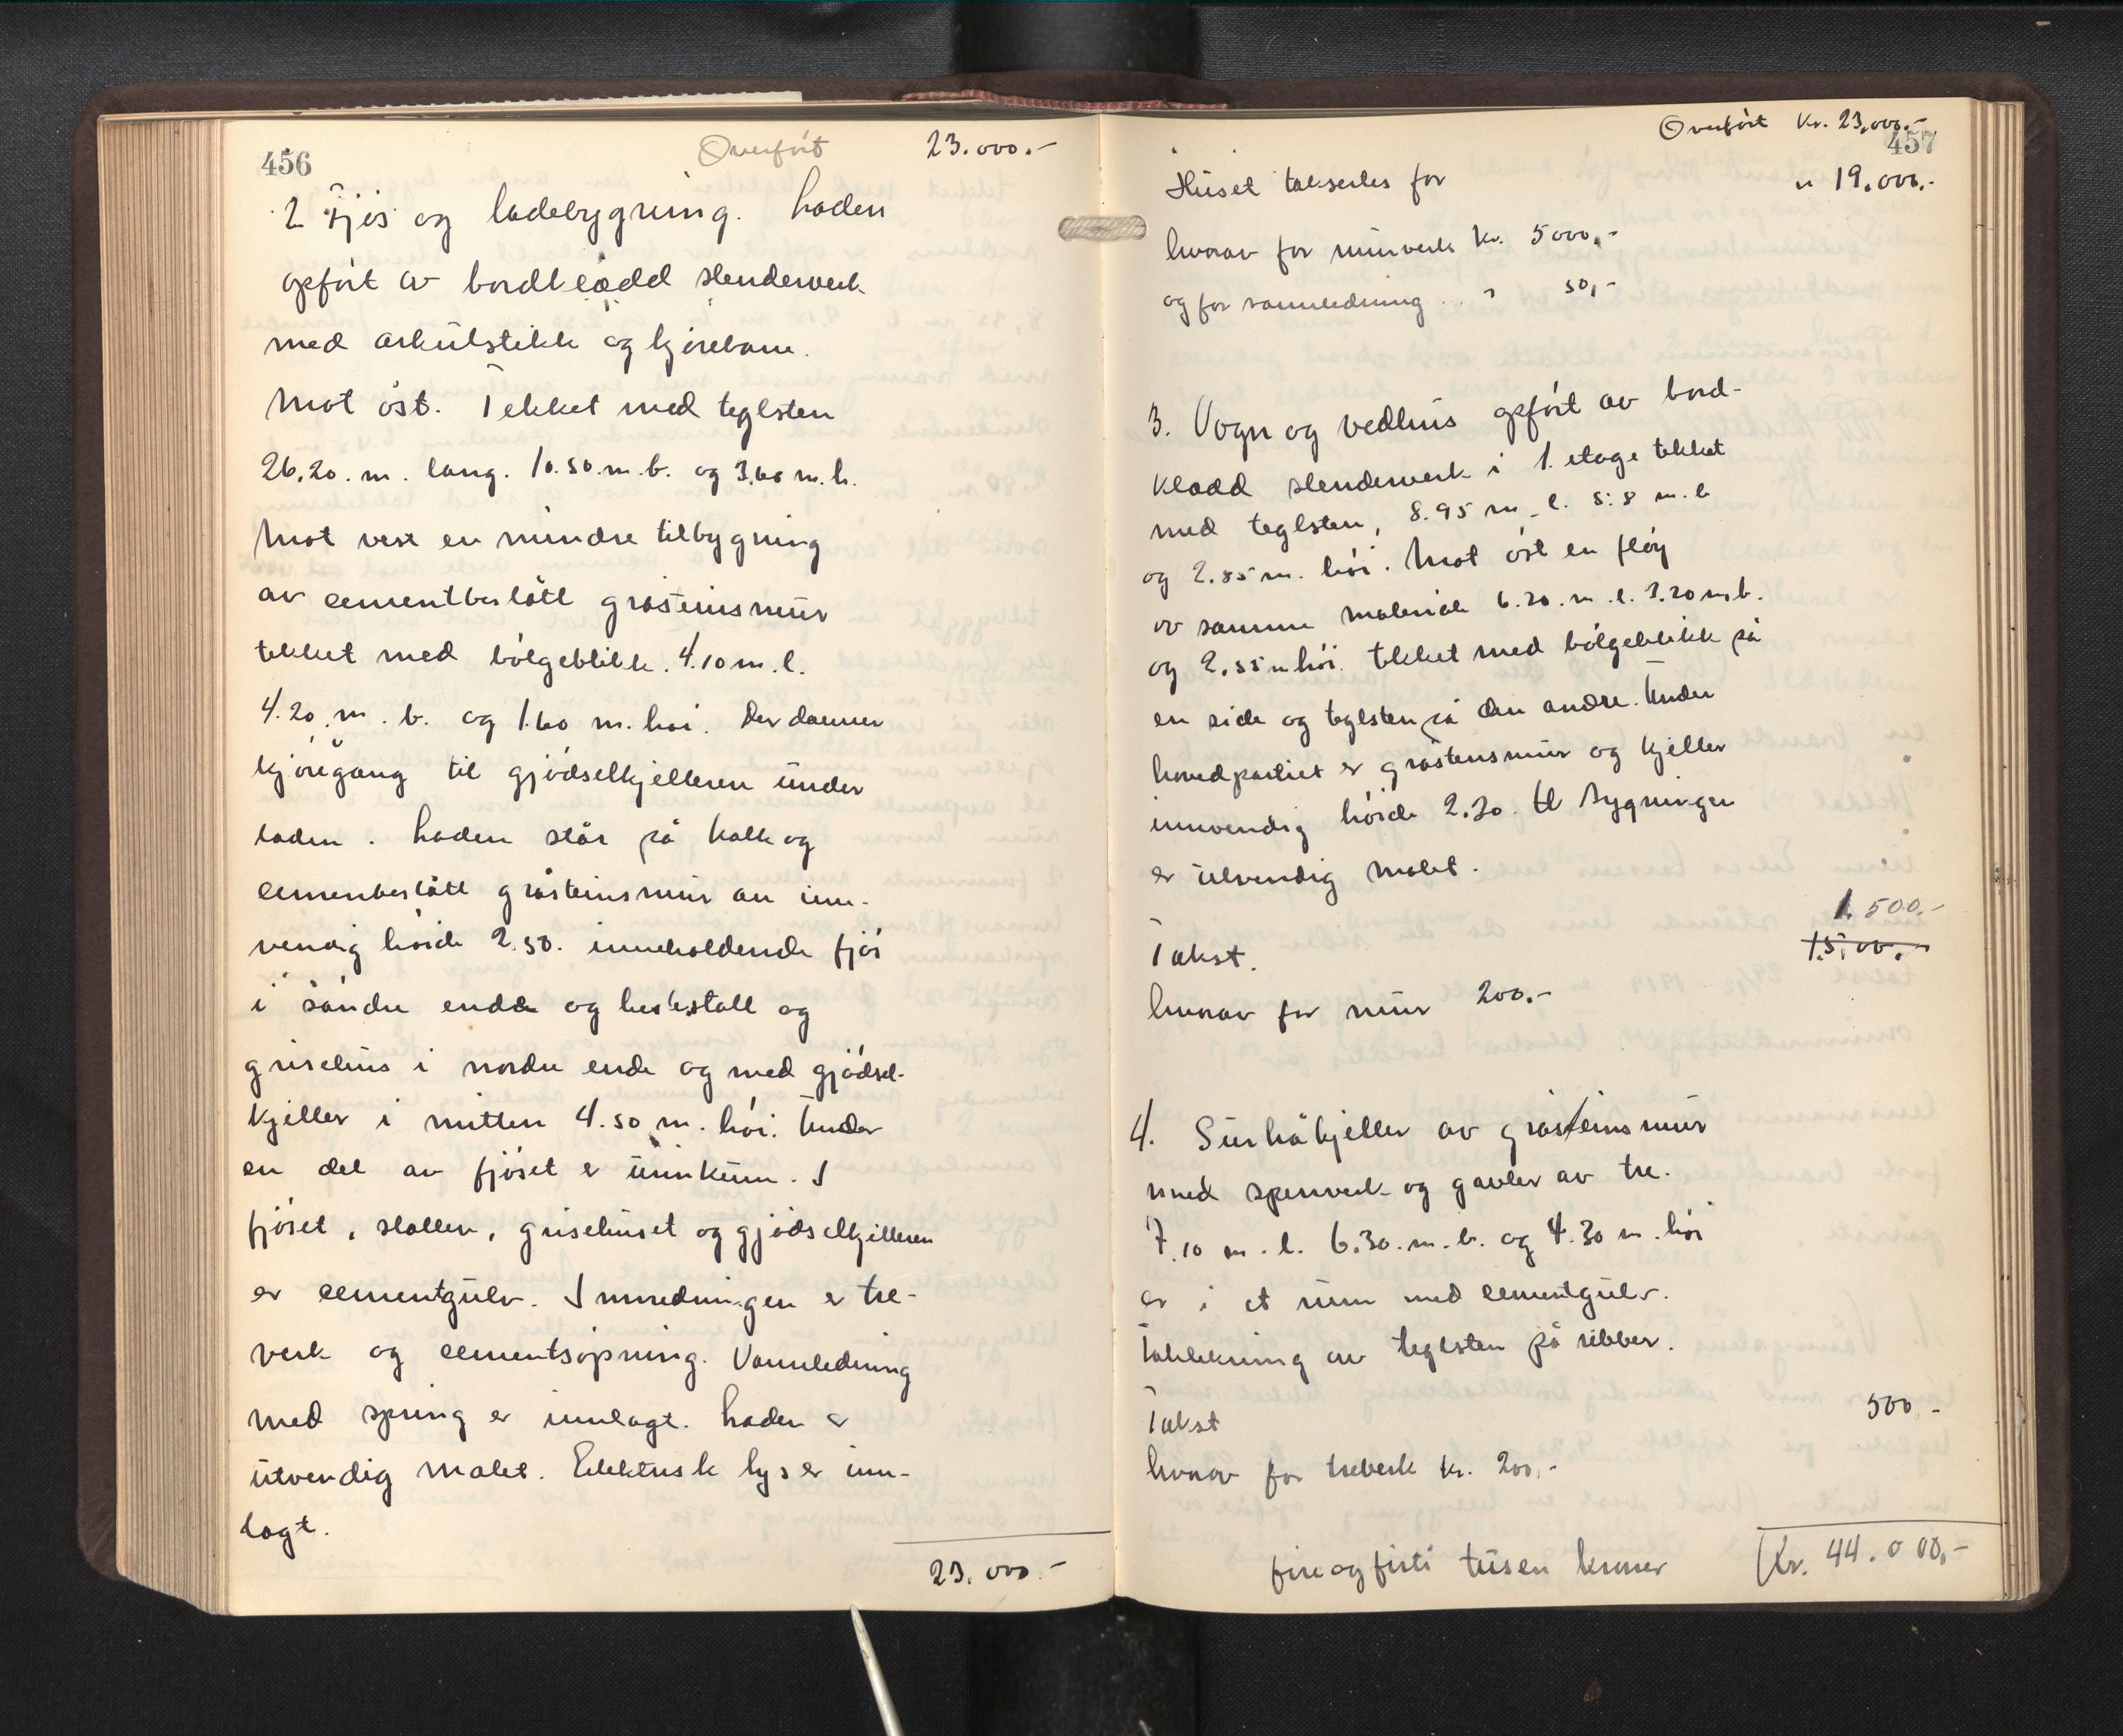 456
Overført 23.000.-
2 Fjøs og ladebygning. Laden
opført av bordklædd stenderverk
med arkulstikk og kjørebane.
Mot øst. Tekket med teglsten
26.20. m. lang. 10.50.m.b. og 3.60 m.h.
Mot vest en mindre tilbygning
av cementbeslått gråsteinsmur
tekket med bølgeblikk. 4.10 m. l.
4.20. m. b. og 1.60 m. høi. Der danner
kjøregang til gjødselkjelleren under
laden. Laden står på kalk og
cemenbeslått gråsteinsmur av inn-
vendig høide 2.50. inneholdende fjøs
i søndre ende og hestestall og
grisehus i nordre ende og med gjødsel-
kjeller i mitten 4.50 m. høi. Under
en del av fjøset er urinkum. I
fjøset, stallen, grisehuset og gjødselkjelleren
er cementgulv. Innredningen er tre-
verk og cementsøpning. Vannledning
med spring er innlagt. Laden er
utvendig malet. Elektrisk lys er inn-
lagt.
23.000.-
Overført Kr. 23.000.-
457
Huset takseres for " 19.000.-
hvorav for murverk Kr. 5000.-
og for vannledning .. " 50,-
3. Vogn og vedhus opført av bord-
klædd stenderverk i 1. etage tekket
med teglsten, 8.95 m. l. 5.8 m. b
og 2.85 m. høi. Mot øst en fløy
av samme materiale 6.20. m. l. 3.20 m.b.
og 2.55 m høi. tekket med bølgeblikk på
en side og teglsten på den andre. Under
hovedpartiet er gråstensmur og kjeller
innvendig høide 2.20. Bygningen
er utvendig malet.
1.500.-
Takst. 1.500.-
hvorav for mur 200.-
4. Surhåkjeller av gråsteinsmur
med sperrverk og gavler av tre.
7.10 m. l. 6.30. m. b. og 4.30 m. høi
er i et rum med cementgulv.
Taktekning av teglsten på ribber.
Takst 500.-
hvorav for treverk Kr. 200.-
fire og firti tusen kroner Kr. 44.000,-